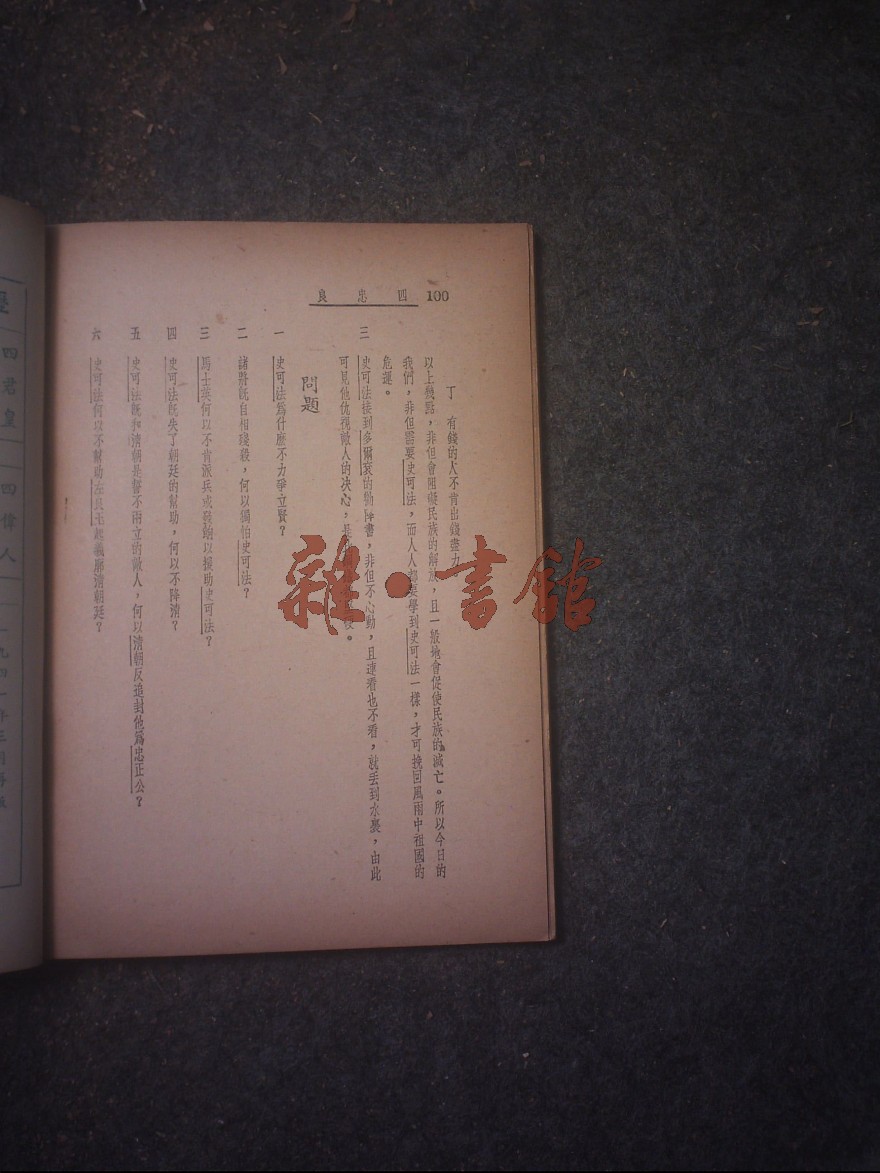 100 四忠良
丁 有錢的人不肯出錢盡力
以上幾點，非但會阻礙民族的解放，且一般地會促使民族的滅亡。所以今日的
我們，非但需要史可法，而人人都要學到史可法一樣，才可挽回風雨中祖國的
危運。
三 史可法接到多爾袞的勸降書，非但不心動，且連看也不看，就丟到水裏，由此
可見他仇視敵人的决心，是
問題
一 史可法爲什麽不力爭立賢？
二 諸將既自相殘殺，何以獨怕史可法？
三 馬士英何以不肯派兵或發餉以援助史可法？
四 史可法既失了朝廷的幫助，何以不降清？
五 史可法既和清朝是誓不兩立的敵人，何以清朝反追封他爲忠正公？
六 史可法何以不幫助左良玉起義廓清朝廷？
四君皇
四偉人
雜·書館